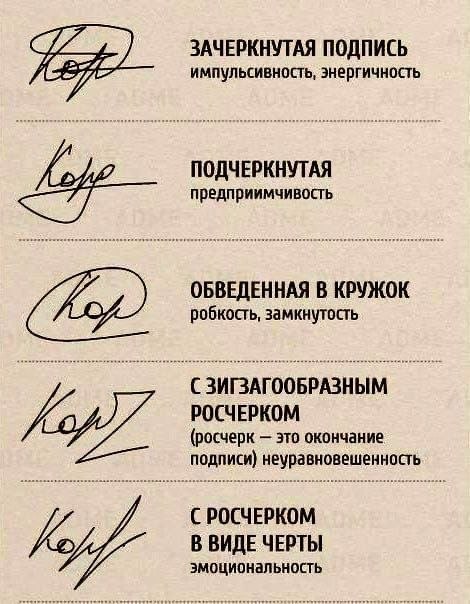 Кор
ЗАЧЕРКНУТАЯ ПОДПИСЬ
импульсивность, энергичность
Кор
ПОДЧЕРКНУТАЯ
предприимчивость
Кор
ОБВЕДЕННАЯ В КРУЖОК
робкость, замкнутость
Кор
С ЗИГЗАГООБРАЗНЫМ
РОСЧЕРКОМ
(росчерк — это окончание
подписи) неуравновешенность
Кор
С РОСЧЕРКОМ
В ВИДЕ ЧЕРТЫ
эмоциональность